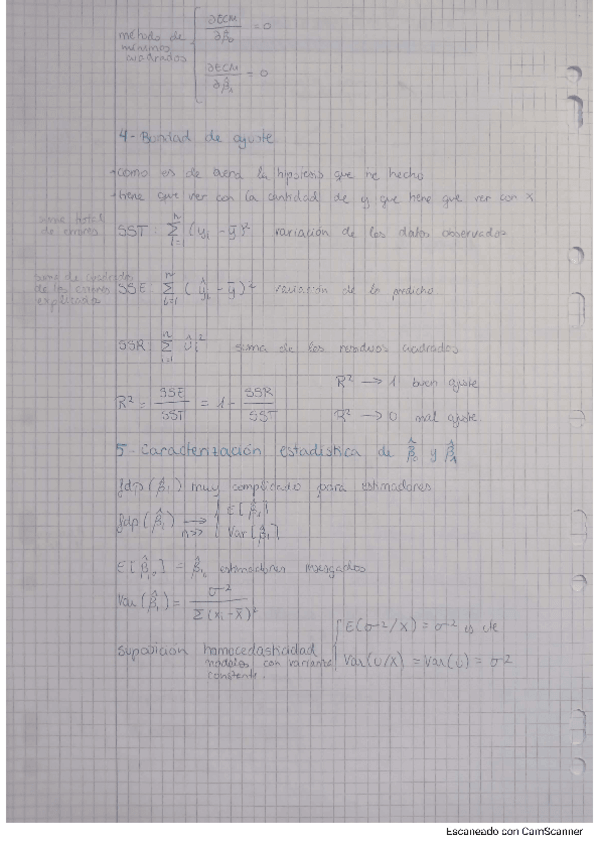 método de mínimos cuadrados { ∂ECM/∂β̂₀ = 0
∂ECM/∂β̂₁ = 0
4- Bondad de ajuste
→ como es de la hipótesis que he hecho
→ tiene que ver con la cantidad de y que tiene que ver con x
suma total de errores SST: Σ_{i=1}^{n} (y_i - ȳ)² variación de los datos observados
suma de cuadrados de los errores explicados SSE: Σ_{i=1}^{n} (ŷ_i - ȳ)² variación de lo predicho
SSR: Σ_{i=1}^{n} û_i² suma de los residuos cuadrados
R² = SSE/SST = 1 - SSR/SST
R² → 1 buen ajuste
R² → 0 mal ajuste
5- Caracterización estadística de β̂₀ y β̂₁
fdp(β̂₁) muy complicado para estimadores
fdp(β̂₁) → n>> { E[β̂₁]
Var[β̂₁]
estimadores insesgados
Var(β̂₁) = σ²/Σ(x_i - x̄)²
suposición homocedasticidad { E(σ²/x) = σ² es cte
modelos con varianza constante. Var(u/x) = Var(u) = σ²
Escaneado con CamScanner